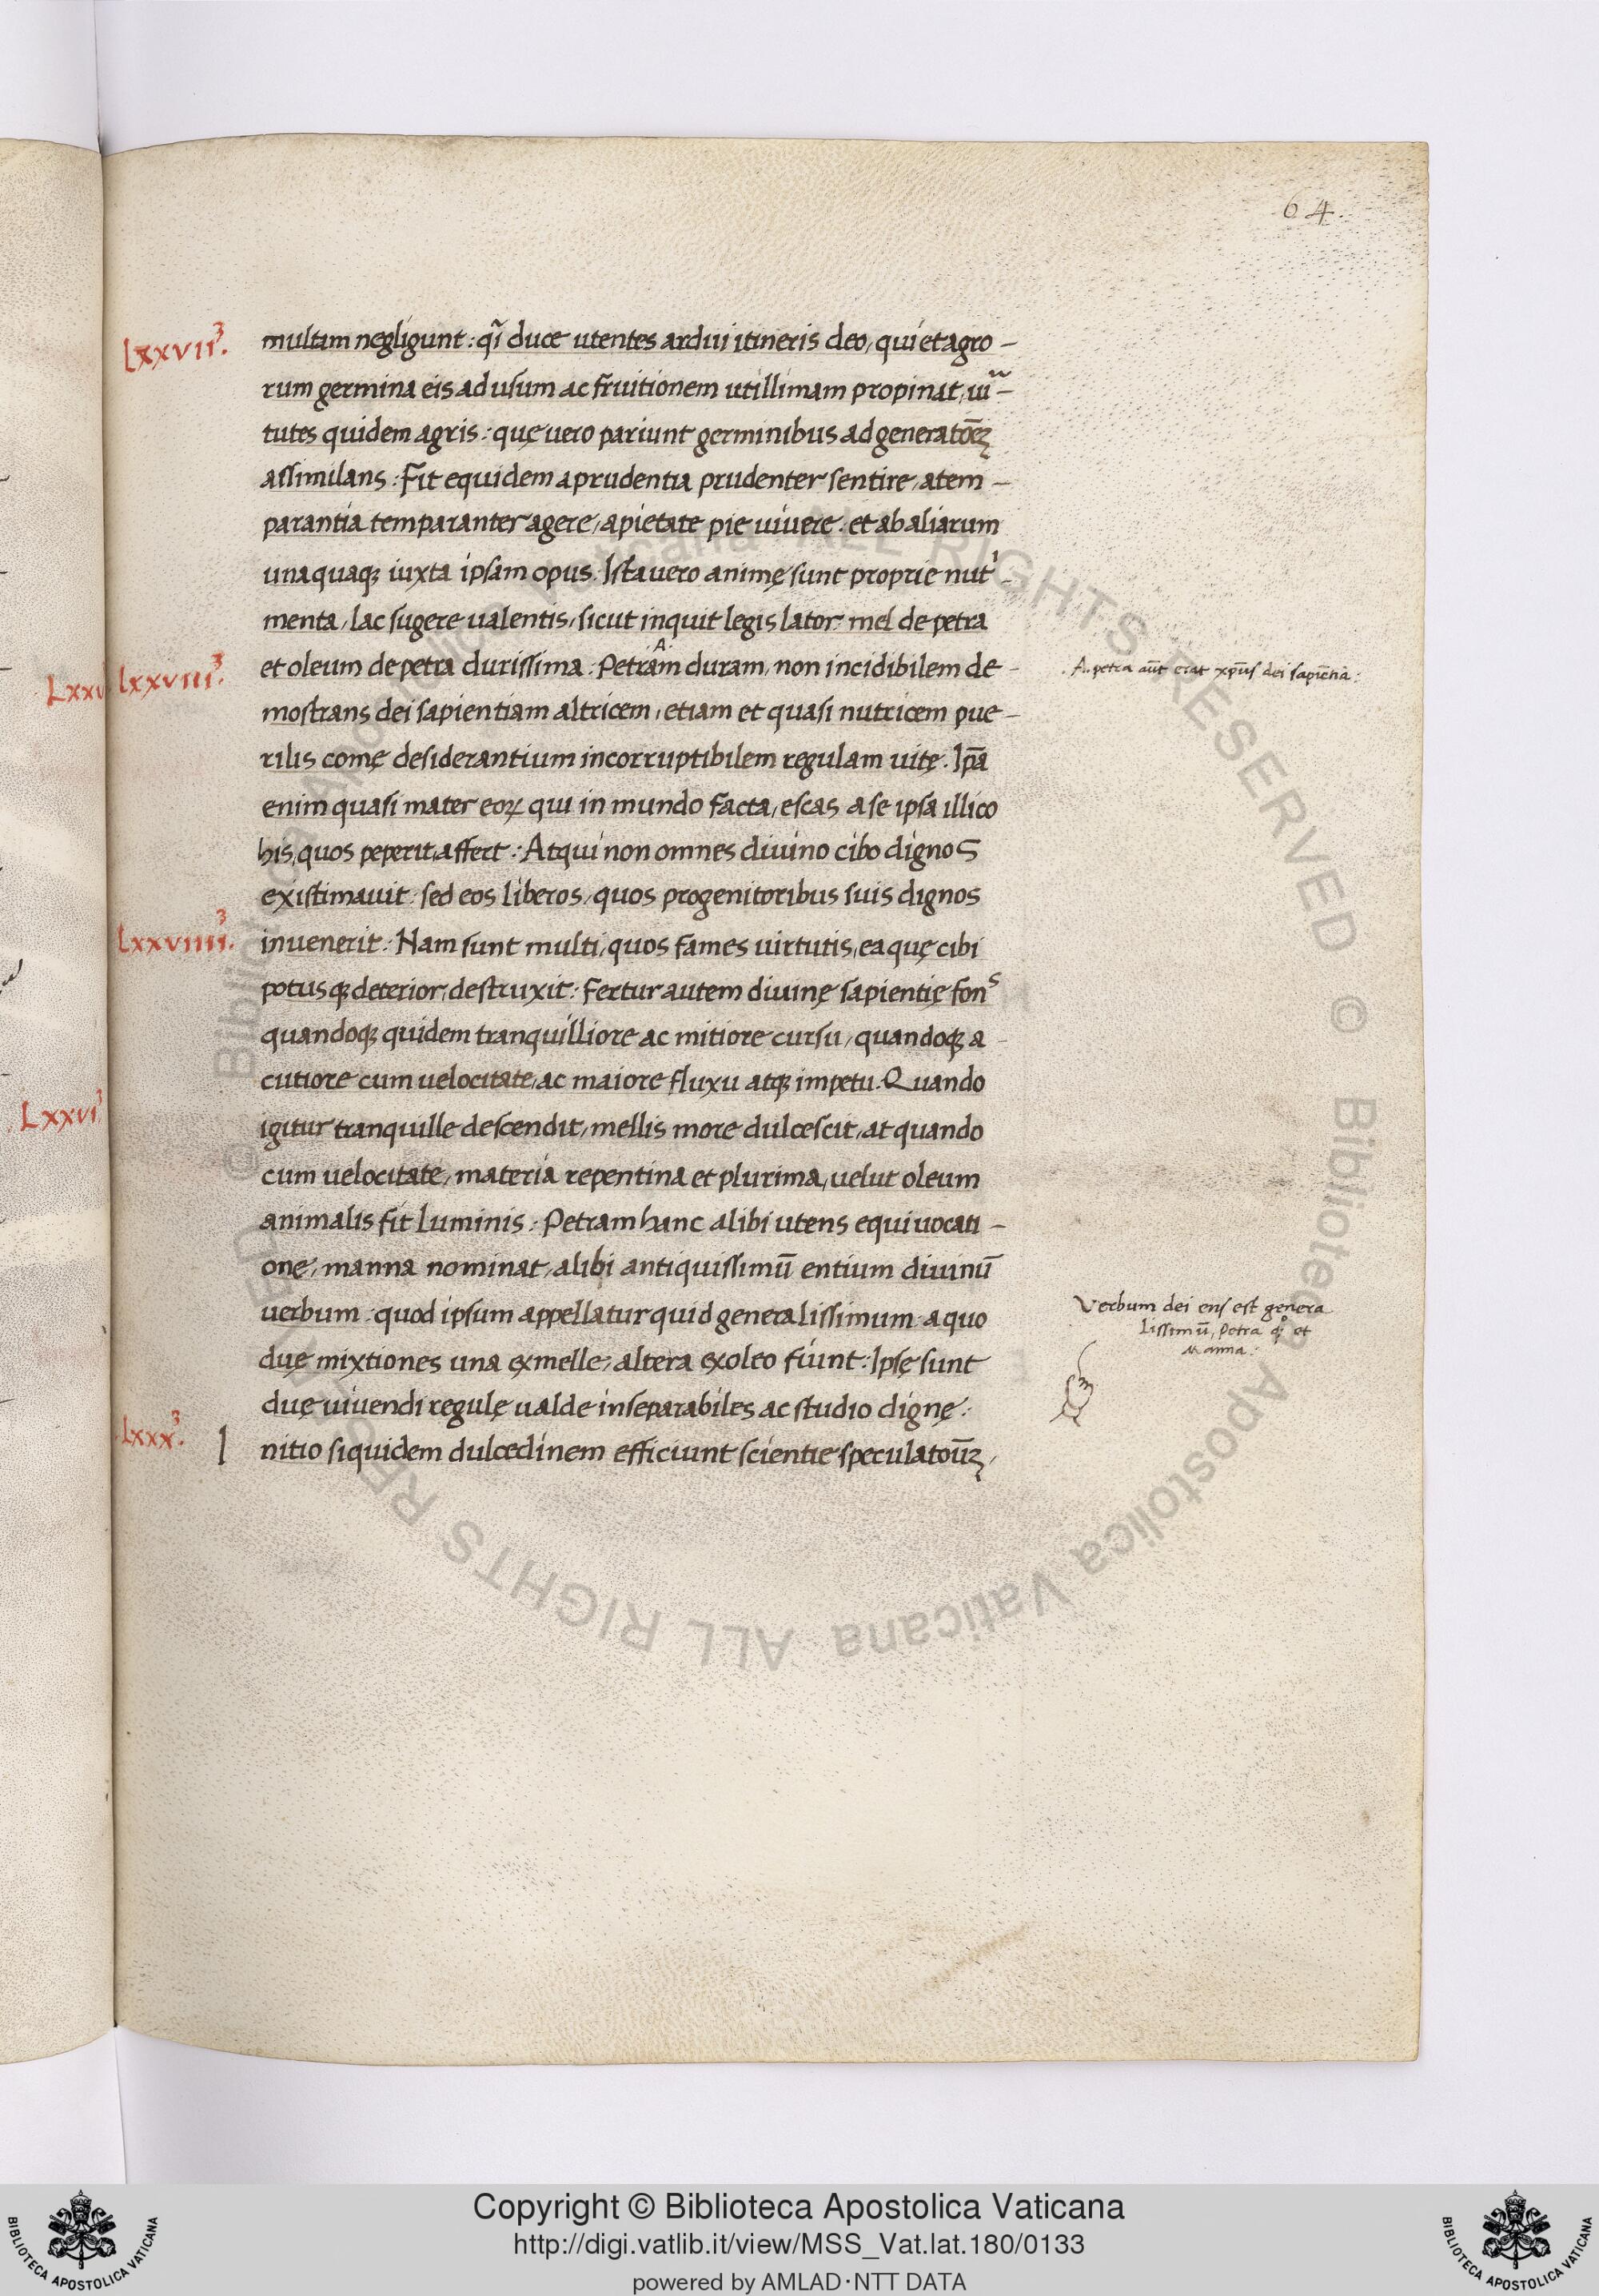 64.
Lxxvii³.
multam negligunt : qĩ duce utentes ardui itineris deo, qui et agro-
rum germina eis ad usum ac fruitionem utillimam propinat, uir-
tutes quidem agris : quę uero pariunt germinibus ad generatōeȝ
assimilans : Fit equidem a prudentia prudenter sentire, a tem-
parantia temparanter agere, a pietate pie uiuere : et ab aliarum
unaquaqȝ iuxta ipsam opus. Ista uero animę sunt proprie nutⁱ-
menta, lac sugere ualentis, sicut inquit legis lator mel de petra
Lxxv
Lxxviii³.
et oleum de petra durissima : Petram duram, non incidibilem de-
A.
A. petra aūt erat xp̄us dei sapiētia :
mostrans dei sapientiam altricem, etiam et quasi nutricem pue-
rilis comę desiderantium incorruptibilem regulam uitę. Ip̄a
enim quasi mater eoꝝ qui in mundo facta, escas a se ipsa illico
his, quos peperit, affert : Atqui non omnes diuino cibo dignos
existimauit : sed eos liberos, quos progenitoribus suis dignos
Lxxviiii³.
inuenerit : Nam sunt multi, quos fames uirtutis, ea quę cibi
potusqȝ deterior, destruxit : Fertur autem diuinę sapientię fonˢ
quandoqȝ quidem tranquilliore ac mitiore cursu, quandoqȝ a-
cutiore cum uelocitate, ac maiore fluxu atqȝ impetu. Quando
Lxxvi³.
igitur tranquille descendit, mellis more dulcescit, at quando
cum uelocitate, materia repentina et plurima, uelut oleum
animalis fit luminis : Petram hanc alibi utens equiuocati-
onę, manna nominat, alibi antiquissimū entium diuinū
uerbum : quod ipsum appellatur quid generalissimum : a quo
Verbum dei ens est genera
lissimū, petra qͦȝ et
manna :
duę mixtiones una ex melle, altera ex oleo fiunt : Ipsę sunt
duę uiuendi regulę ualde inseparabiles ac studio dignę :
Lxxx³.
I nitio siquidem dulcedinem efficiunt scientie speculatoūȝ,
© Biblioteca Apostolica Vaticana ALL RIGHTS RESERVED © Biblioteca Apostolica Vaticana ALL RIGHTS RESERVED
Copyright © Biblioteca Apostolica Vaticana
http://digi.vatlib.it/view/MSS_Vat.lat.180/0133
powered by AMLAD·NTT DATA
BIBLIOTECA APOSTOLICA VATICANA
BIBLIOTECA APOSTOLICA VATICANA